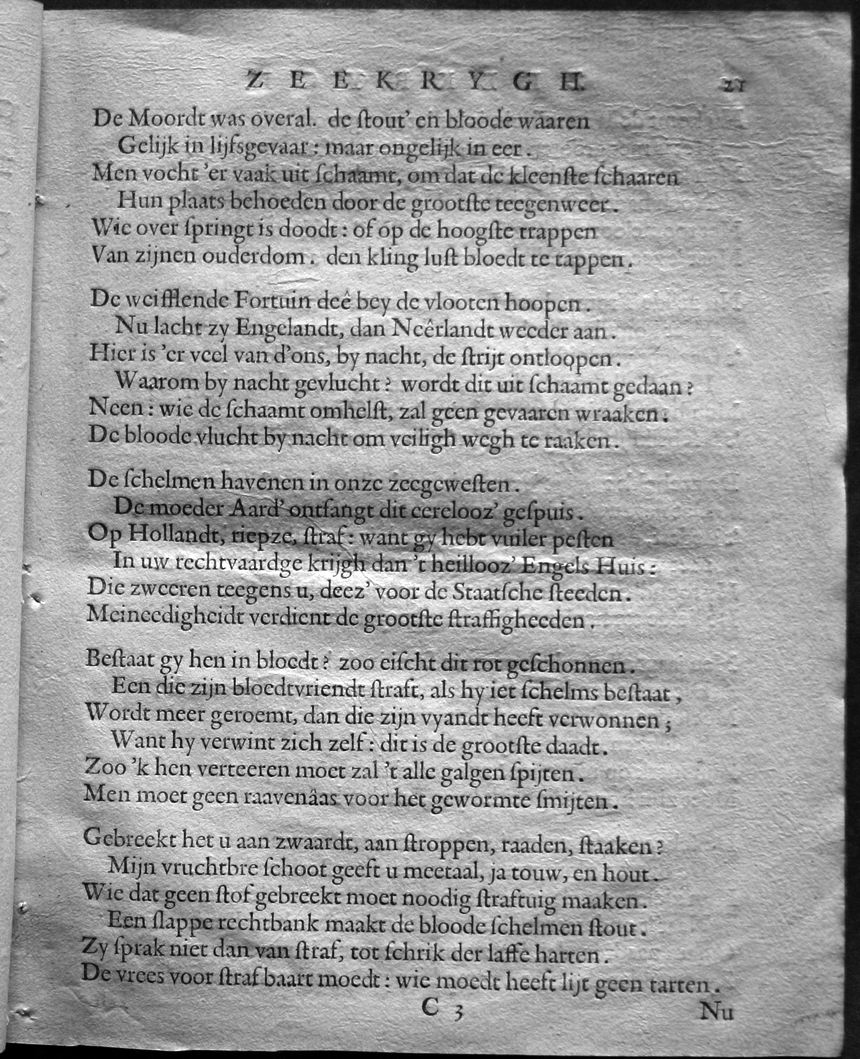 ZEEKRYGH. 21
De Moordt was overal. de ſtout' en bloode waaren
Gelijk in lijfsgevaar: maar ongelijk in eer.
Men vocht 'er vaak uit ſchaamt, om dat de kleenſte ſchaaren
Hun plaats behoeden door de grootſte teegenweer.
Wie over ſpringt is doodt: of op de hoogſte trappen
Van zijnen ouderdom. den kling luſt bloedt te tappen.
De weifflende Fortuin deê bey de vlooten hoopen.
Nu lacht zy Engelandt, dan Neêrlandt weeder aan.
Hier is 'er veel van d'ons, by nacht, de ſtrijt ontloopen.
Waarom by nacht gevlucht? wordt dit uit ſchaamt gedaan?
Neen: wie de ſchaamt omhelſt, zal geen gevaaren wraaken.
De bloode vlucht by nacht om veiligh wegh te raaken.
De ſchelmen havenen in onze zeegeweſten.
De moeder Aard' ontfangt dit eerelooz' geſpuis.
Op Hollandt, riepze, ſtraf: want gy hebt vuiler peſten
In uw rechtvaardge krijgh dan 't heillooz' Engels Huis:
Die zweeren teegens u, deez' voor de Staatſche ſteeden.
Meineedigheidt verdient de grootſte ſtraffigheeden.
Beſtaat gy hen in bloedt? zoo eiſcht dit rot geſchonnen.
Een die zijn bloedtvriendt ſtraft, als hy iet ſchelms beſtaat,
Wordt meer geroemt, dan die zijn vyandt heeft verwonnen;
Want hy verwint zich zelf: dit is de grootſte daadt.
Zoo 'k hen verteeren moet zal 't alle galgen ſpijten.
Men moet geen raavenâas voor het gewormte ſmijten.
Gebreekt het u aan zwaardt, aan ſtroppen, raaden, ſtaaken?
Mijn vruchtbre ſchoot geeft u meetaal, ja touw, en hout.
Wie dat geen ſtof gebreekt moet noodig ſtraftuig maaken.
Een ſlappe rechtbank maakt de bloode ſchelmen ſtout.
Zy ſprak niet dan van ſtraf, tot ſchrik der laffe harten.
De vrees voor ſtraf baart moedt: wie moedt heeft lijt geen tarten.
C 3 Nu